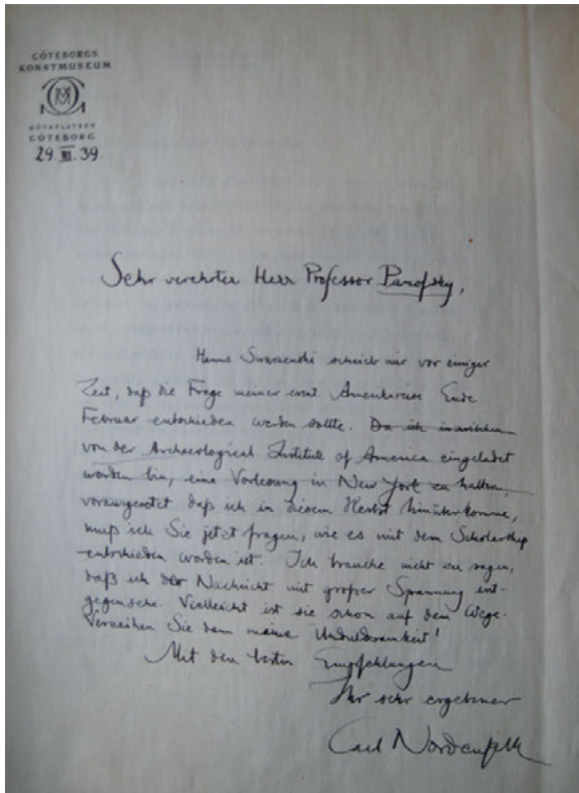 GÖTEBORGS
KONSTMUSEUM
GÖTAPLATSEN
GÖTEBORG
29. III. 39
Sehr verehrter Herr Professor Panofsky,
Hanns Swarzenski schrieb mir vor einiger
Zeit, daß die Frage meiner event. Amerikareise Ende
Februar entschieden werden sollte. Da ich inzwischen
von der Archaeological Institute of America eingeladet
worden bin, eine Vorlesung in New York zu halten,
vorausgesetzt daß ich in diesem Herbst hinüberkomme,
muß ich Sie jetzt fragen, wie es mit dem Scholarship
entschieden worden ist. Ich brauche nicht zu sagen,
daß ich der Nachricht mit großer Spannung ent-
gegensehe. Vielleicht ist sie schon auf dem Wege.
Verzeihen Sie dann meine Unduldsamkeit!
Mit den besten Empfehlungen
Ihr sehr ergebener
Carl Nordenfalk